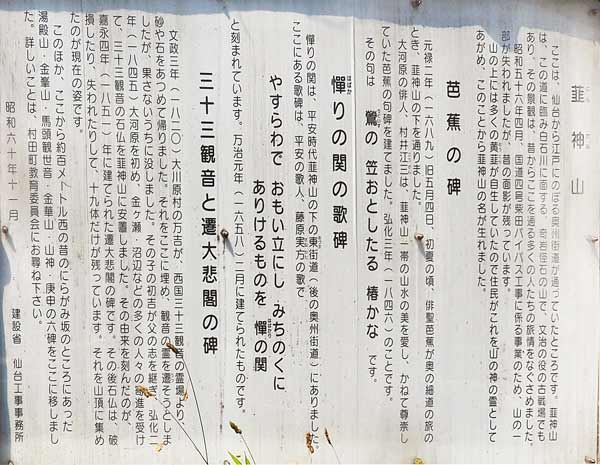 韮神山
ここは、仙台から江戸にのぼる奥州街道が通っていたところです。韮神山
は、この道に臨み白石川に面する、奇岩怪石の山で、文治の役の古戦場でも
あり、その景観は、昔からここを通る多くの人たちの旅情をなぐさめました。
昭和五十六年四月、国道四号柴田バイパス工事に係る事業のため、山の一
部が失われましたが、昔の面影が残っています。
山の上には多くの黄韮が自生していたので住民がこれを山の神の霊として
あがめ、このことから韮神山の名が生れました。
芭蕉の碑
元禄二年(一六八九)旧五月四日 初夏の頃、俳聖芭蕉が奥の細道の旅の
とき、韮神山の下を通りました。
大河原の俳人、村井江三は、韮神山一帯の山水の美を愛し、かねて尊崇し
ていた芭蕉の句碑を建てました。弘化三年(一八四六)のことです。
その句は 鶯の 笠おとしたる 椿かな です。
憚りの関の歌碑
憚りの関は、平安時代韮神山の下の東街道(後の奥州街道)にありました。
ここにある歌碑は、平安の歌人、藤原実方の歌で
やすらわで おもい立にし みちのくに
ありけるものを 憚の関
と刻まれています。万治元年(一六五八)三月に建てられたものです。
三十三観音と遷大悲閣の碑
文政三年(一八二〇)大川原村の万吉が、西国三十三観音の霊場より、
砂や石をあつめて帰りました。それをここに埋め、観音の霊を遷そうとしま
したが、果さないうちに没しました。その子の初吉が父の志を継ぎ、弘化二
年(一八四五)大河原を初め、金ヶ瀬・沼辺などの多くの人々の寄進を受け
て、三十三観音の石仏を韮神山に安置しました。その由来を刻んだのが、
嘉永四年(一八五一)年に建てられた遷大悲閣の碑です。その後石仏は、破
損したり、失われたりして、十九体だけが残っています。それを山頂に集め
たのが現在の姿です。
このほか、ここから約百メートル西の昔のにらがみ坂のところにあった
湯殿山・金峯山・馬頭観世音・金華山・山神・庚申の六碑をここに移しまし
た。詳しいことは、村田町教育委員会にお尋ね下さい。
昭和六十年十一月
建設省 仙台工事事務所